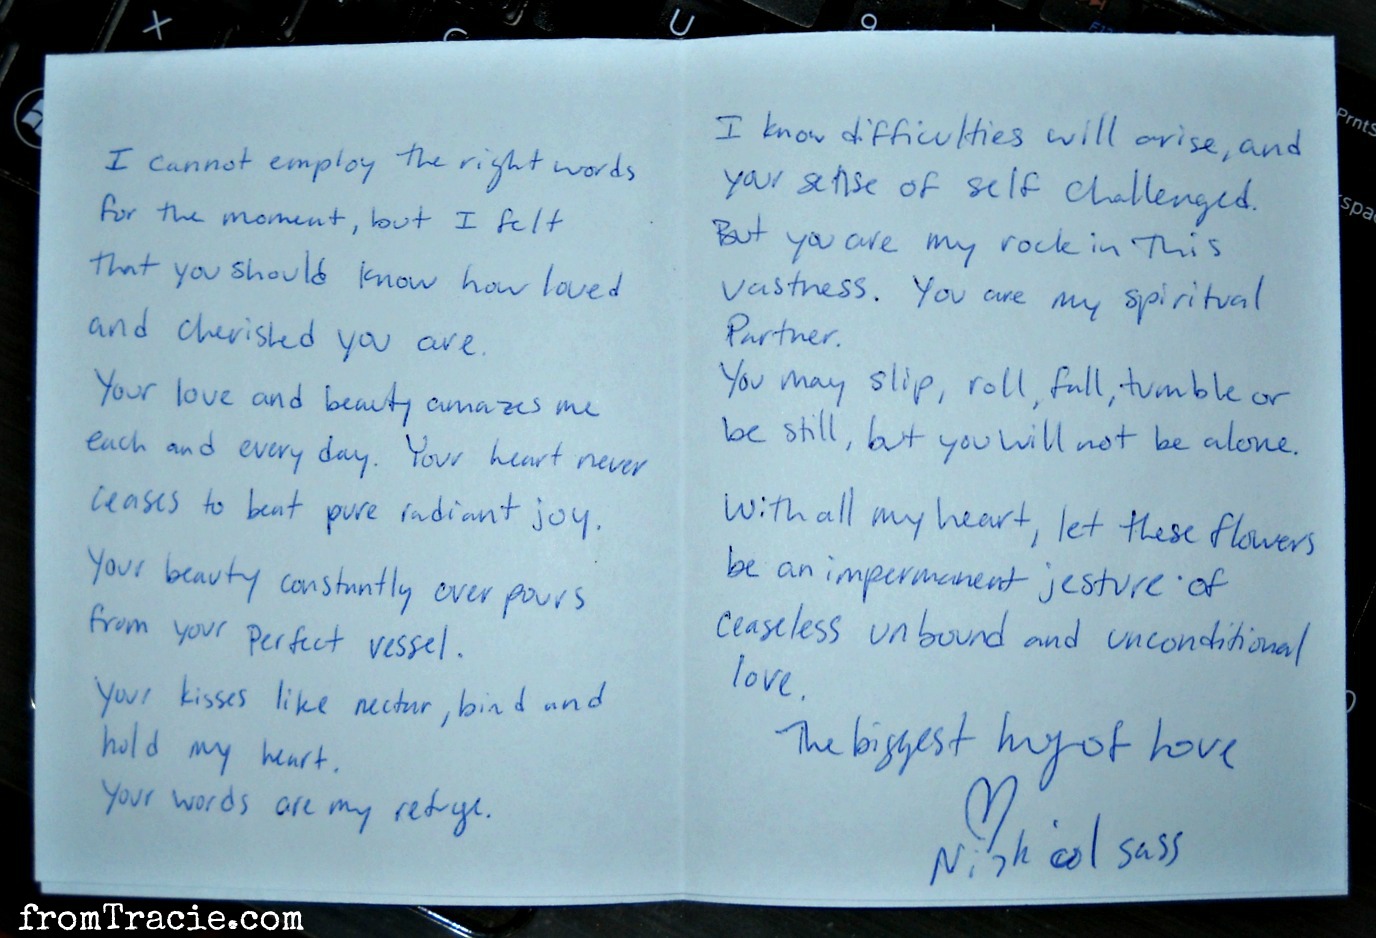 I cannot employ the right words
for the moment, but I felt
that you should know how loved
and cherished you are.
Your love and beauty amazes me
each and every day. Your heart never
ceases to beat pure radiant joy.
Your beauty constantly over pours
from your perfect vessel.
Your kisses like nectar, bind and
hold my heart.
Your words are my refuge.
I know difficulties will arise, and
your sense of self challenged.
But you are my rock in this
vastness. You are my spiritual
Partner.
You may slip, roll, fall, tumble or
be still, but you will not be alone.
With all my heart, let these flowers
be an impermanent jesture of
ceaseless unbound and unconditional
love.
The biggest hug of Love
sass
X
C
U
9
PrntS
fromTracie.com